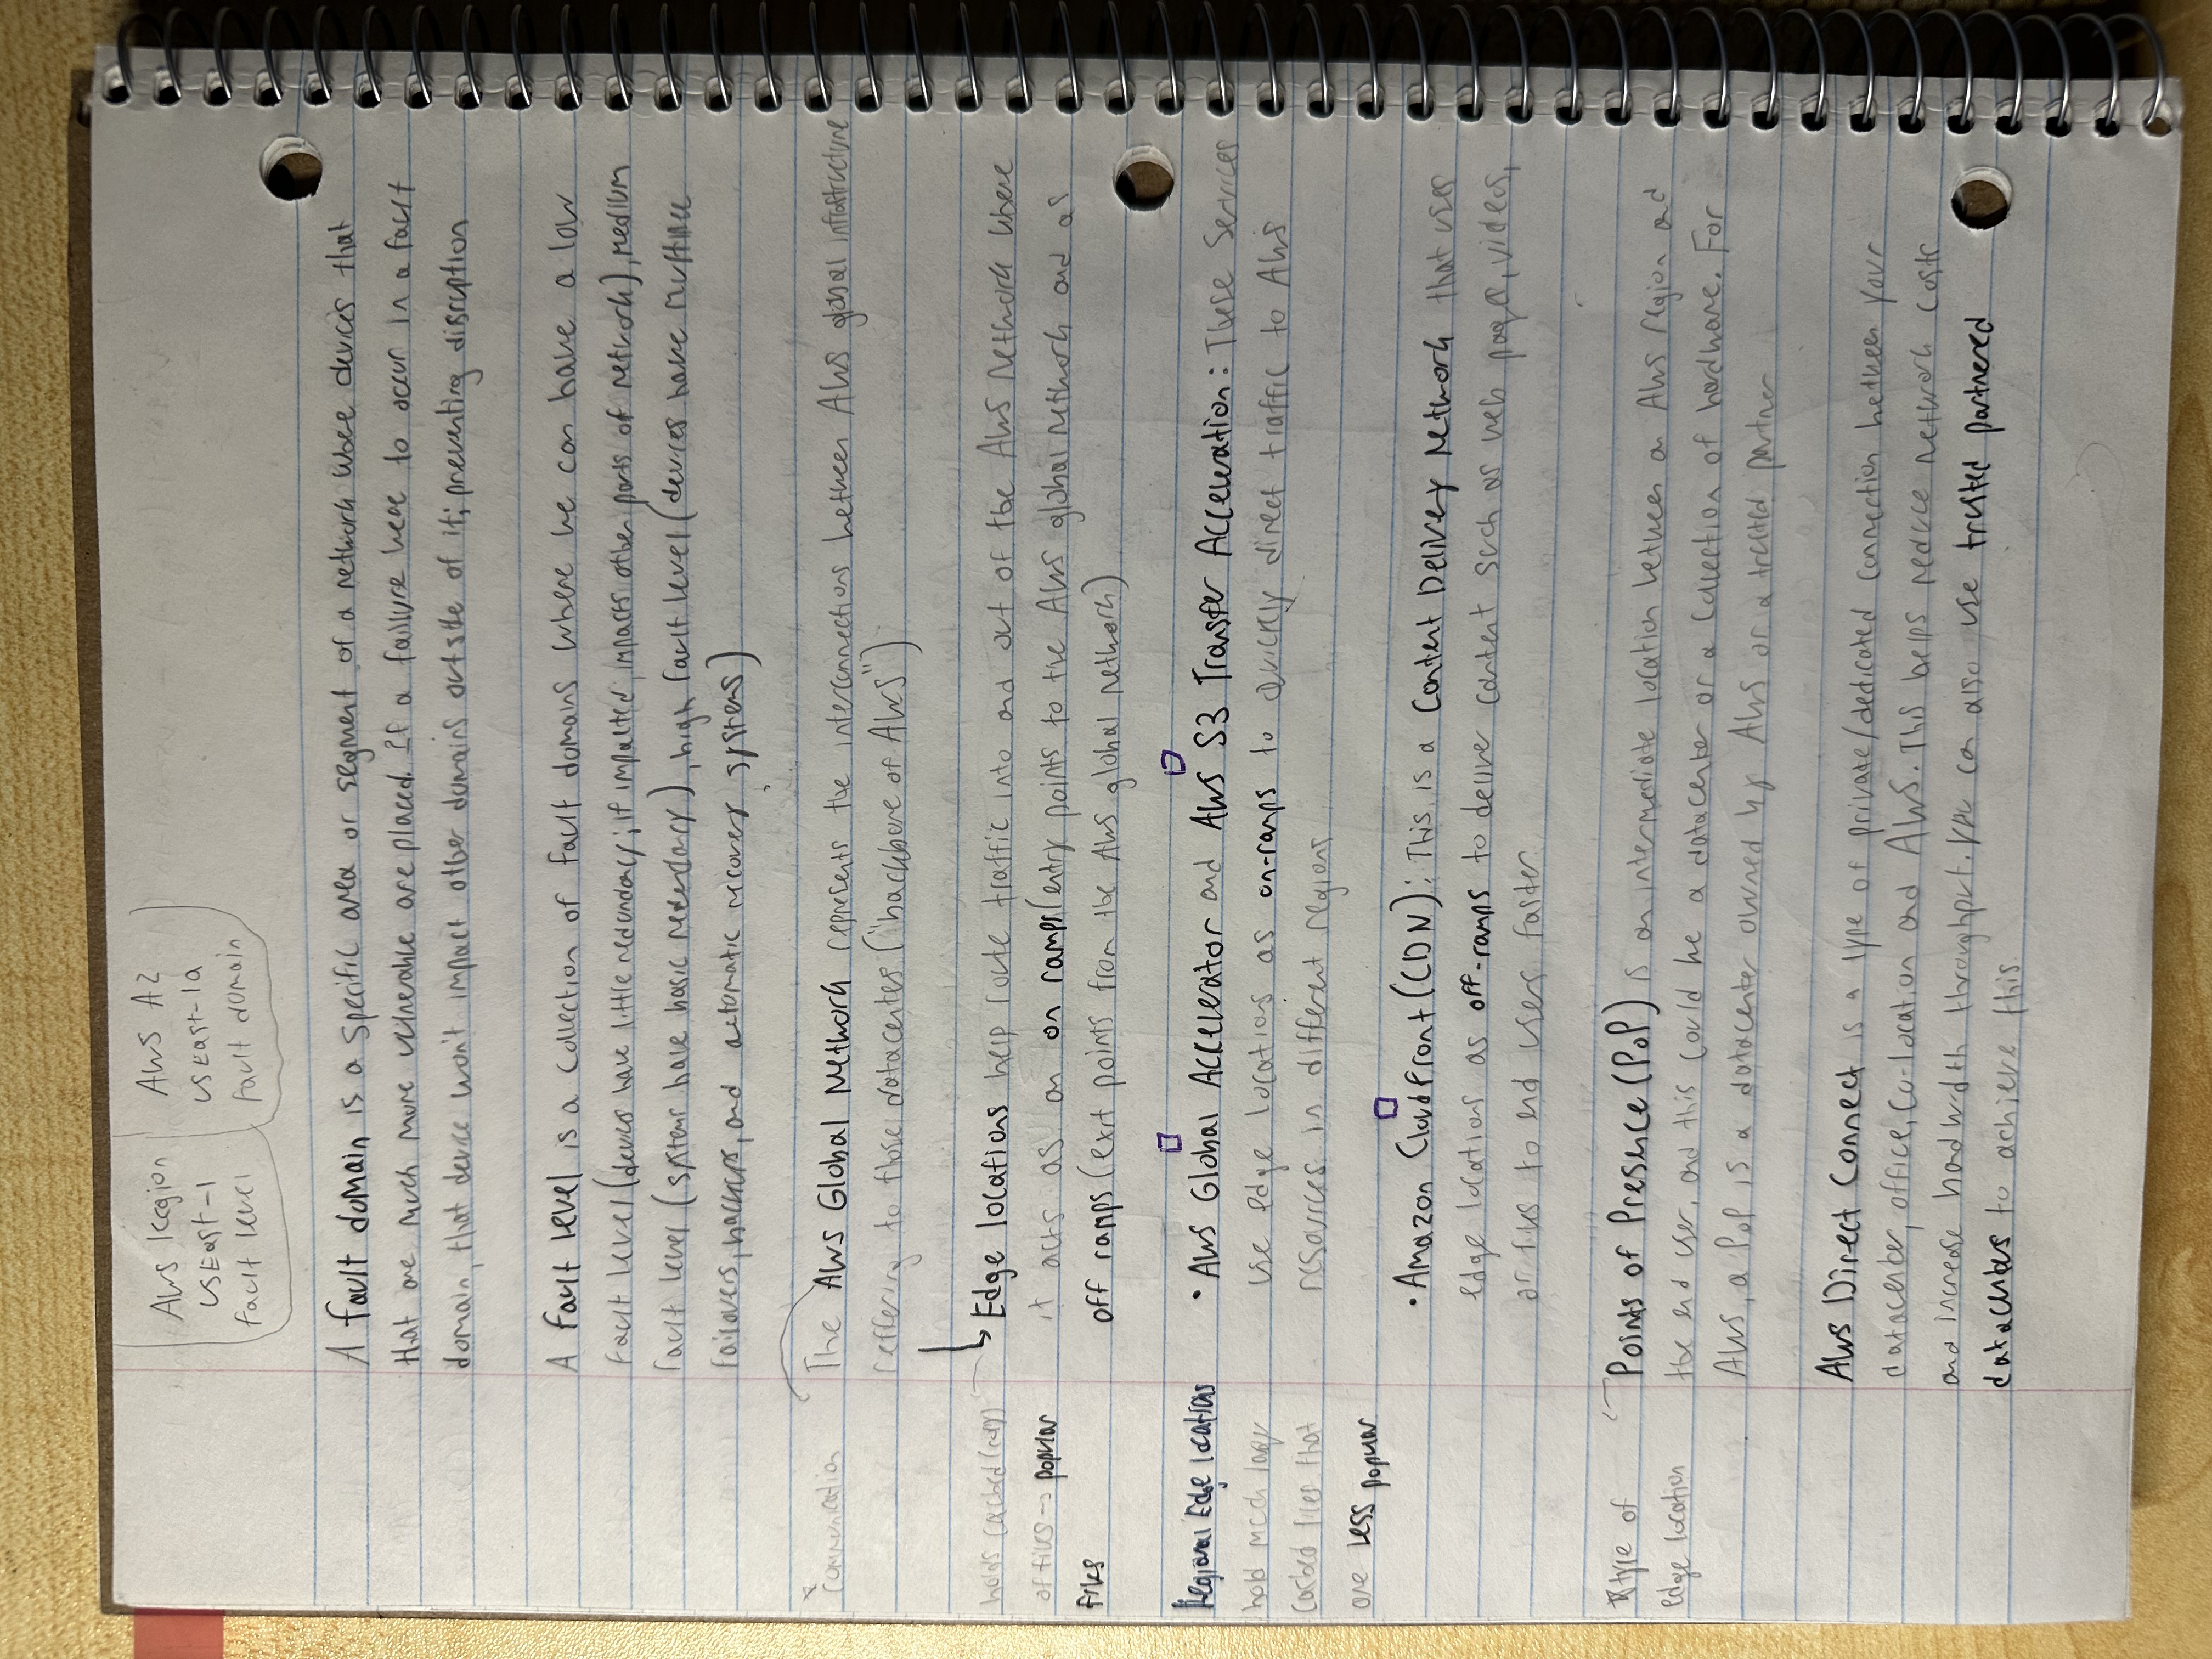 AWS Region
USEast-1
fault level
AWS AZ
USEast-1a
fault domain
A fault domain is a specific area or segment of a network whose devices that
that are much more vulnerable are placed. If a failure were to occur in a fault
domain, that device won't impact other domains outside of it; preventing disruption
A fault level is a collection of fault domains where we can have a low
fault level (devices have little redundancy; if impacted, impacts other parts of network), medium
fault level (systems have basic redundancy), high fault level (devices have multiple
failovers, backups, and automatic recovery systems)
communication
The AWS Global Network represents the interconnections between AWS global infrastructure
reffering to those datacenters ("backbone of AWS")
holds cached (copy)
of files → popular
files
Edge locations help route traffic into and out of the AWS Network where
it acts as an on ramps (entry points to the AWS global network and as
off ramps (exit points from the AWS global network)
Regional Edge locations
hold much larger
cached files that
are less popular
• AWS Global Accelerator and AWS S3 Transfer Acceleration: These services
use edge locations as on-ramps to quickly direct traffic to AWS
resources in different regions
• Amazon CloudFront (CDN): This is a Content Delivery Network that uses
edge locations as off-ramps to deliver content such as web pages, videos,
or files to end users faster.
*type of
edge location
Points of Presence (PoP) is an intermediate location between an AWS region and
the end user, and this could be a datacenter or a collection of hardware. For
AWS, a PoP is a datacenter owned by AWS or a trusted partner
AWS Direct Connect is a type of private/dedicated connection between your
datacenter, office, co-location and AWS. This helps reduce network costs
and increase bandwidth throughput. You can also use trusted partnered
datacenters to achieve this.